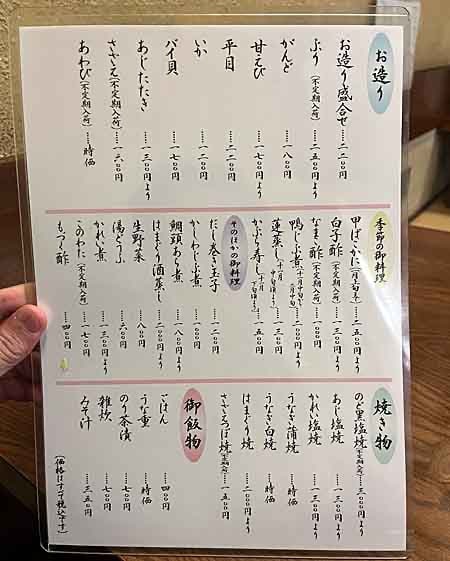 お造り
お造り盛合せ……二二〇〇円
ぶり(不定期入荷)……二五〇〇円より
がんど……一八〇〇円
甘えび……一七〇〇円より
平目……二二〇〇円
いか……一二〇〇円
バイ貝……一七〇〇円
あじたたき……一三〇〇円より
さざえ(不定期入荷)……一六〇〇円
あわび(不定期入荷)……時価
季節の御料理
甲ばこかに……二五〇〇円より
白子酢(不定期入荷)……一五〇〇円より
なま酢(不定期入荷)……一〇〇〇円
鴨じぶ煮……二〇〇〇円
蓮蒸し
かぶら寿し……一五〇〇円
そのほかの御料理
だし巻き玉子……一二〇〇円
かしわじぶ煮……一三〇〇円
鯛頭あら煮……一八〇〇円より
はまぐり酒蒸し……二〇〇〇円より
生野菜……八〇〇円
湯どうふ……六〇〇円
かれい煮……一三〇〇円より
このわた(不定期入荷)……一七〇〇円
もづく酢……四〇〇円
焼き物
のど黒塩焼(不定期入荷)……三〇〇〇円より
あじ塩焼……一三〇〇円より
かれい塩焼……一三〇〇円より
うなぎ蒲焼……時価
うなぎ白焼……時価
はまぐり焼……一三〇〇円より
さざえつぼ焼(不定期入荷)……一五〇〇円
御飯物
ごはん……四〇〇円
うな重……時価
のり茶漬……七〇〇円
雑炊……七〇〇円
みそ汁……三五〇円
(価格はすべて税込です)